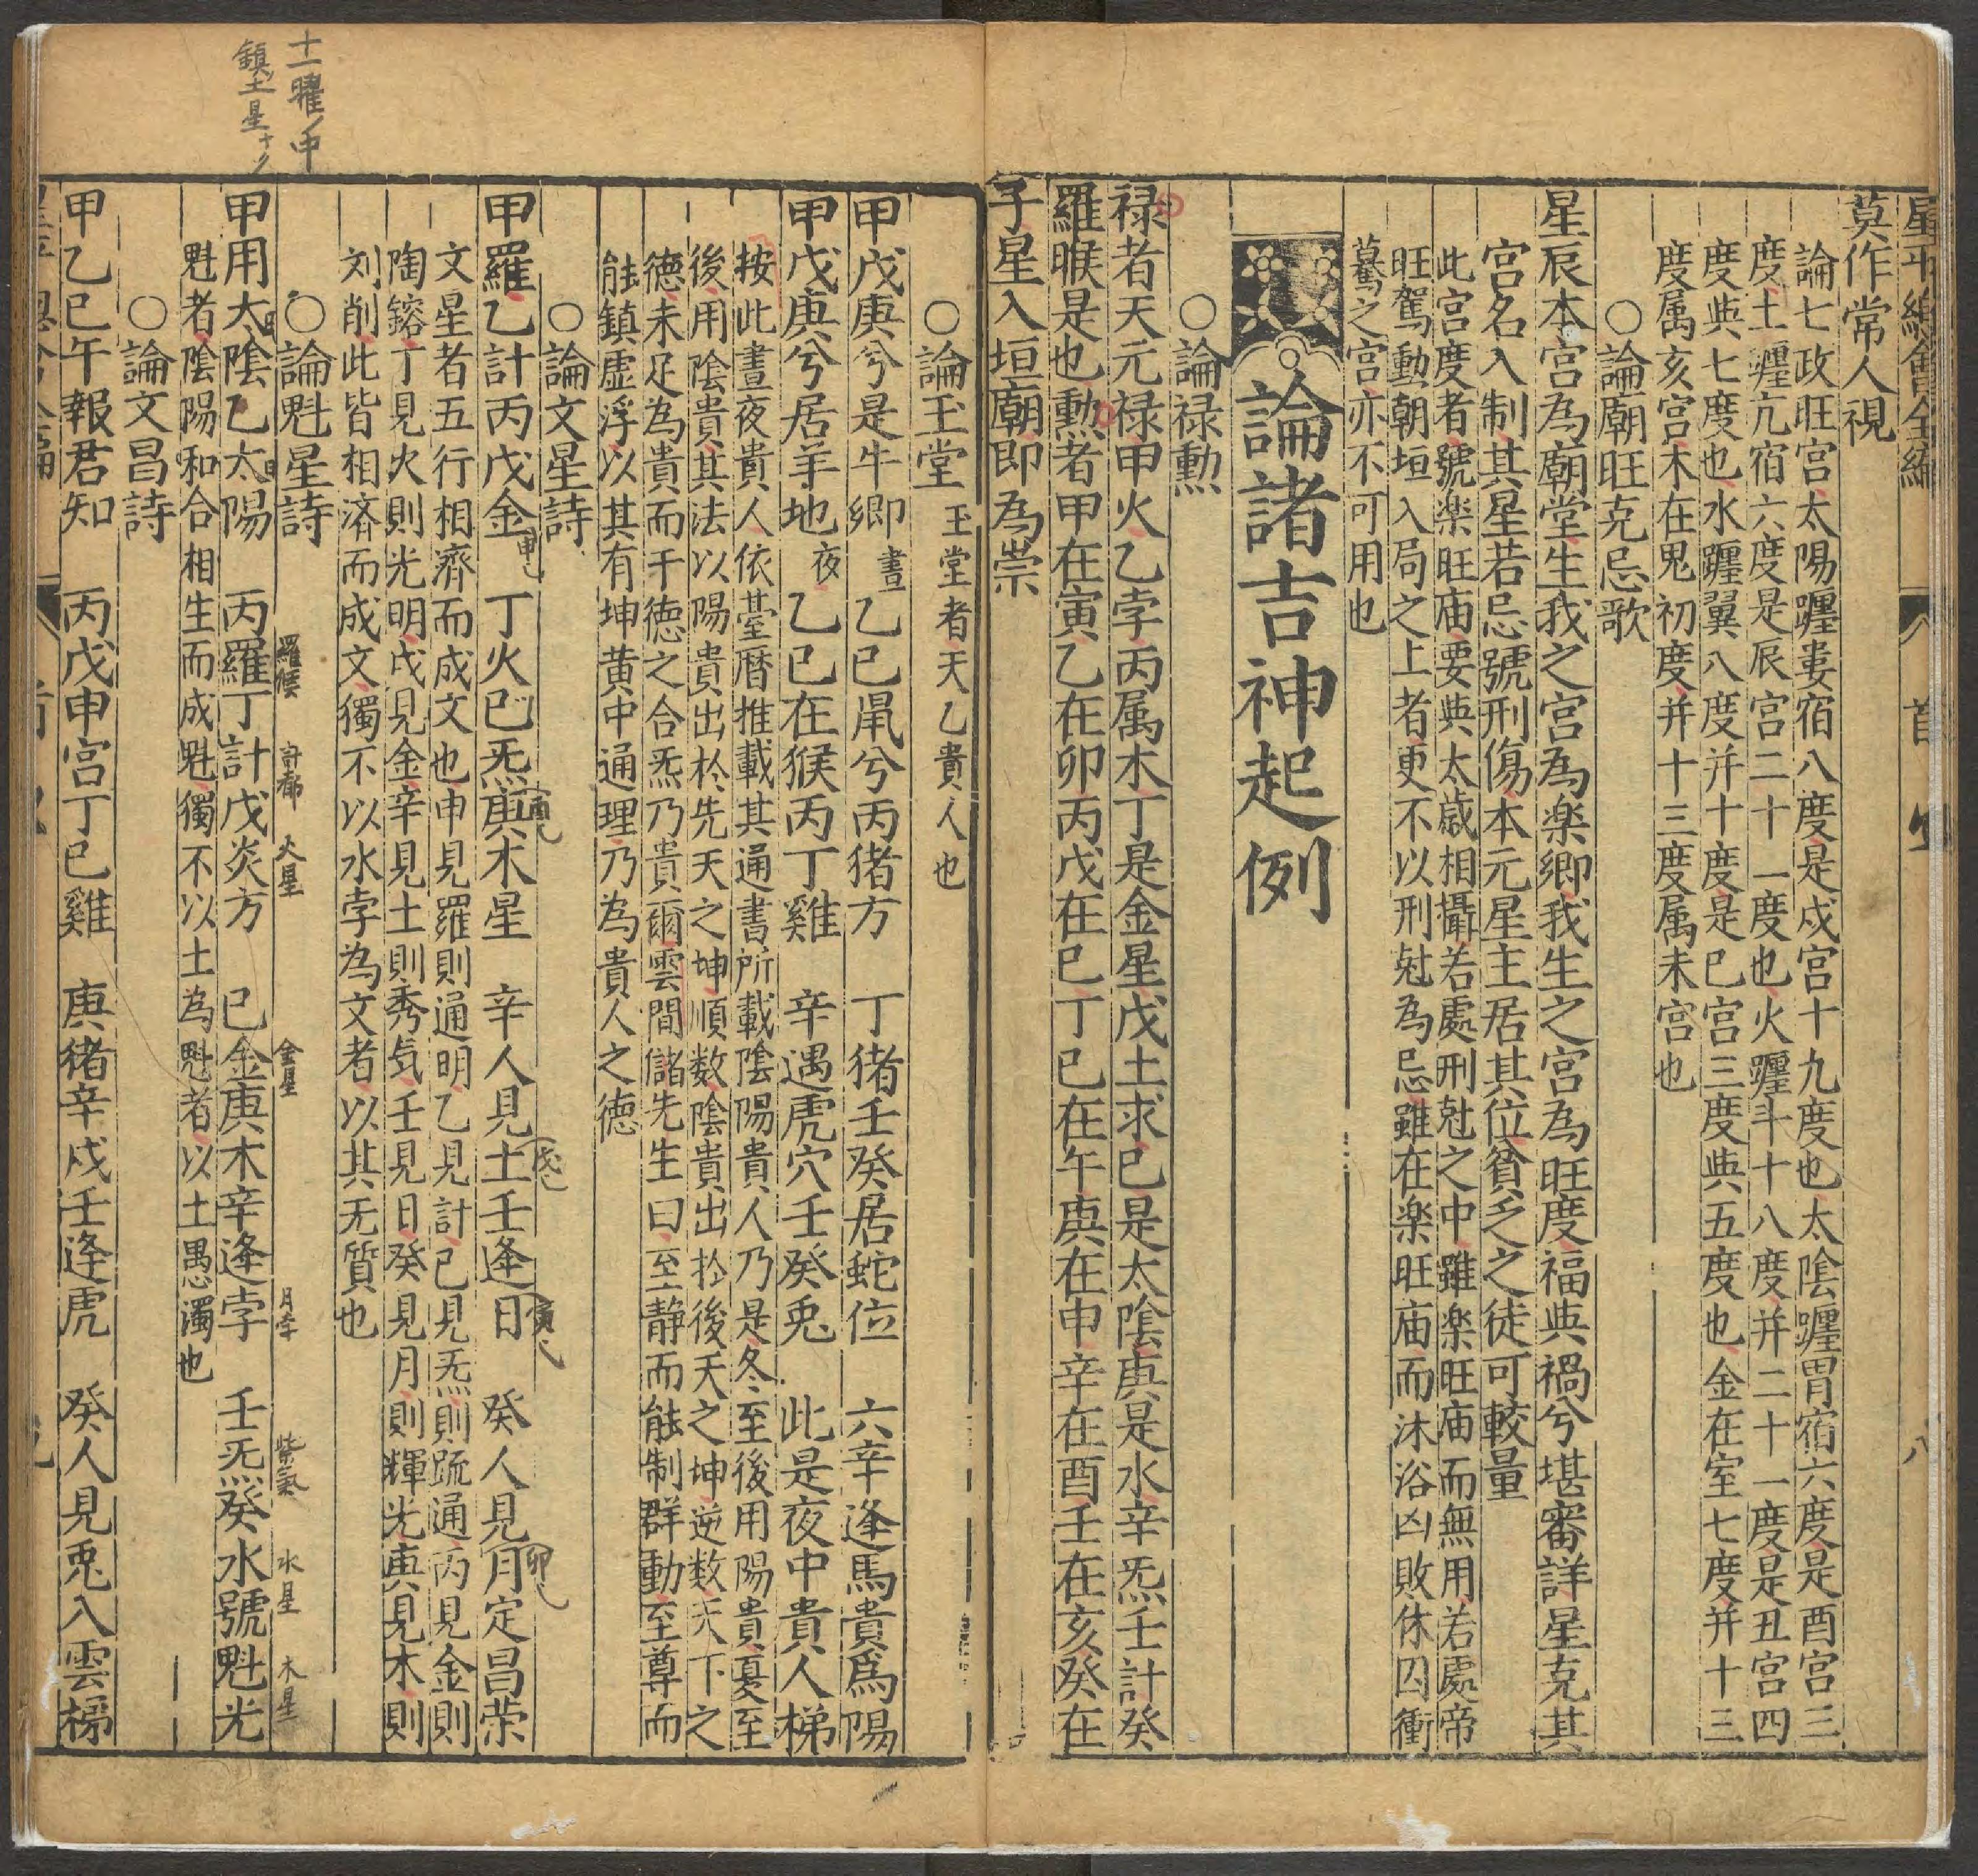 莫作常人視
論七政旺宫太陽躔婁宿八度是戍宫十九度也太陰躔胃宿六度是酉宫三
度土躔亢宿六度是辰宫二十一度也火躔斗十八度并二十一度是丑宫四
度與七度也水躔翼八度并十度是巳宫三度與五度也金在室七度并十三
度属亥宫木在鬼初度并十三度属未宫也
○論廟旺克忌歌
星辰本宫為廟堂生我之宫為楽卿我生之宫為旺度福與禍兮堪審詳星克其
宫名入制其星若忌號刑傷本元星主居其位貧乏之徒可較量
此宫度者號楽旺庙要與太歳相攝若處刑尅之中雖楽旺庙而無用若處帝
旺駕勳朝垣入局之上者更不以刑尅為忌雖在楽旺庙而沐浴凶敗休囚衝
驀之宫亦不可用也
論諸吉神起例
○論禄勲
禄者天元禄甲火乙孛丙属木丁是金星戊土求己是太陰庚是水辛炁壬計癸
羅睺是也勲者甲在寅乙在卯丙戊在巳丁己在午庚在申辛在酉壬在亥癸在
子星入垣廟即為崇
○論玉堂 玉堂者天乙貴人也
甲戊庚兮是牛卿 晝 乙己鼠兮丙猪方 丁猪壬癸居蛇位 六辛逢馬貴爲陽
甲戊庚兮居羊地 夜 乙己在猴丙丁雞 辛遇虎穴壬癸兎 此是夜中貴人梯
按此晝夜貴人依臺曆推載其通書所載陰陽貴人乃是冬至後用陽貴夏至
後用陰貴其法以陽貴出於先天之坤順数陰貴出扵後天之坤逆数天下之
德未足為貴而干德之合炁乃貴爾雲間儲先生曰至静而能制群動至尊而
能鎮虚浮以其有坤黄中通理乃為貴人之德
○論文星詩
甲羅乙計丙戊金 丁火己炁庚木星 辛人見土壬逢日 癸人見月定昌荣
文星者五行相齊而成文也甲見羅則通明乙見計己見炁則疏通丙見金則
陶鎔丁見火則光明戊見金辛見土則秀気壬見日癸見月則輝光庚見木則
刘削此皆相济而成文獨不以水孛為文者以其无質也
○論魁星詩
羅睺 計都 火星 金星 月孛 紫氣 水星 木星
甲用太陰乙太陽 丙羅丁計戊炎方 己金庚木辛逢孛 壬炁癸水號魁光
魁者陰陽和合相生而成魁獨不以土為魁者以土愚濁也
○論文昌詩
甲乙巳午報君知 丙戊申宫丁己雞 庚猪辛戍壬逢虎 癸人見兎入雲梯
十一曜ノ中
鎮土星